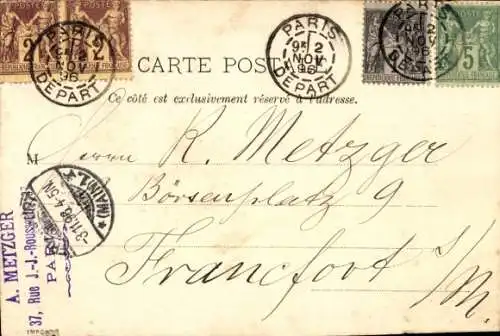 POSTE
2
POSTE
2
POSTE
POSTE
5
PARIS
2
NOV
96
DEPART
PARIS
2
NOV
96
DEPART
PARIS
2
NOV
96
CARTE POST
Ce côté est exclusivement réservé à l'adresse.
M
Herrn R. Metzger
Börsenplatz 9
Francfort /M.
(MAIN) 1. *
-3.11.96. 4-5N
A. METZGER
37, Rue J.-J.-Rousseau
PARIS